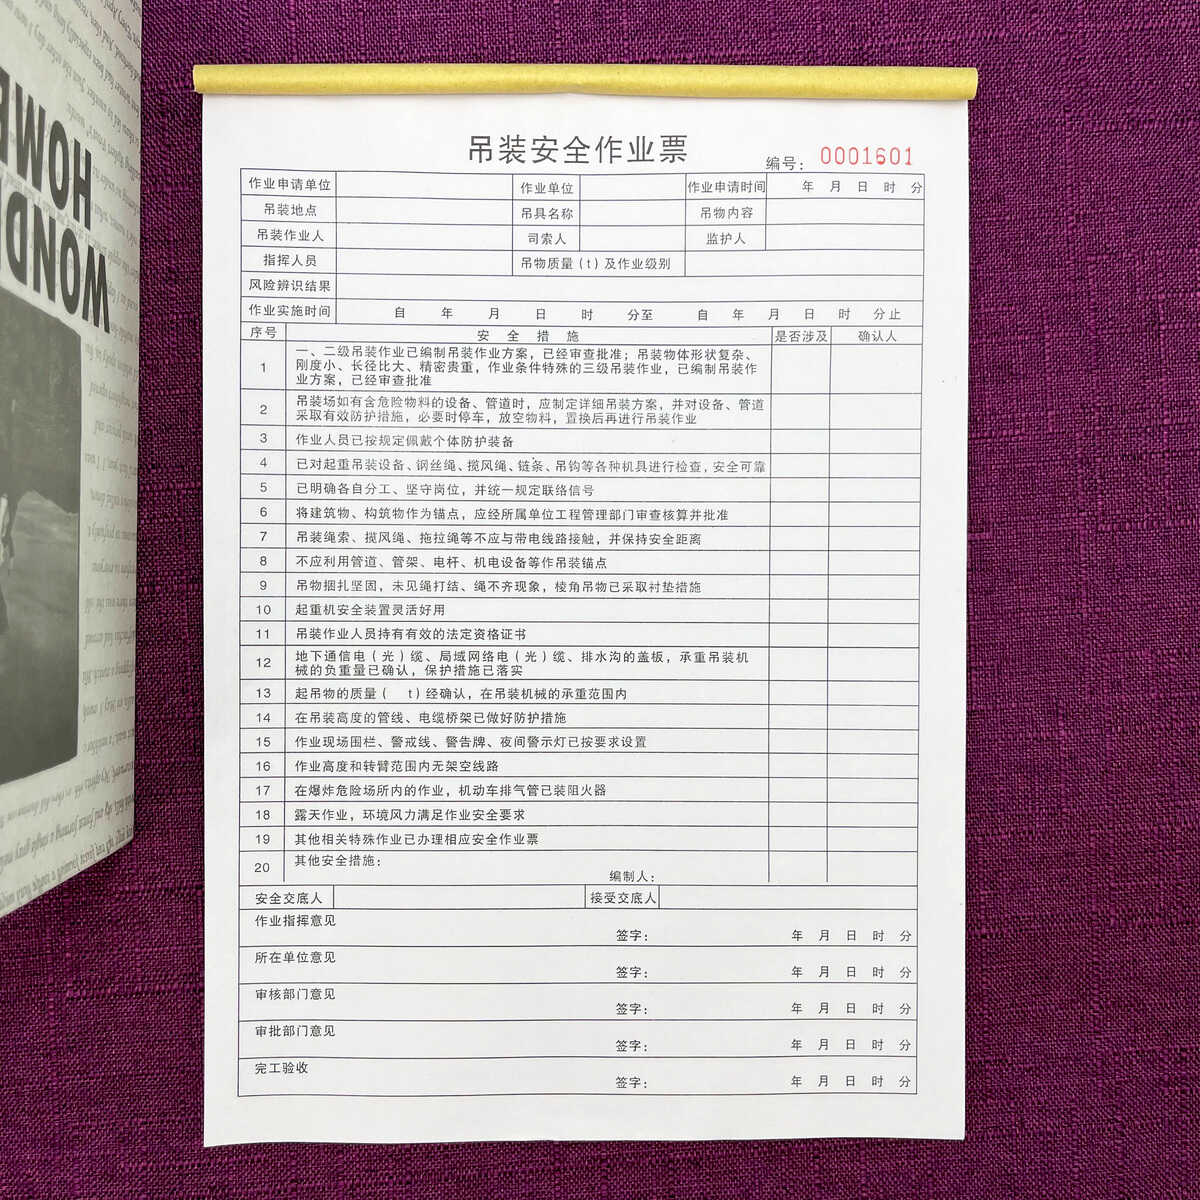 HOME
WOND
吊装安全作业票
编号: 0001601
作业申请单位 作业单位 作业申请时间 年 月 日 时 分
吊装地点 吊具名称 吊物内容
吊装作业人 司索人 监护人
指挥人员 吊物质量(t)及作业级别
风险辨识结果
作业实施时间 自 年 月 日 时 分至 自 年 月 日 时 分止
序号 安全措施 是否涉及 确认人
1 一、二级吊装作业已编制吊装作业方案，已经审查批准；吊装物体形状复杂、
刚度小、长径比大、精密贵重，作业条件特殊的三级吊装作业，已编制吊装作
业方案，已经审查批准
2 吊装场如有含危险物料的设备、管道时，应制定详细吊装方案，并对设备、管道
采取有效防护措施，必要时停车，放空物料，置换后再进行吊装作业
3 作业人员已按规定佩戴个体防护装备
4 已对起重吊装设备、钢丝绳、揽风绳、链条、吊钩等各种机具进行检查，安全可靠
5 已明确各自分工、坚守岗位，并统一规定联络信号
6 将建筑物、构筑物作为锚点，应经所属单位工程管理部门审查核算并批准
7 吊装绳索、揽风绳、拖拉绳等不应与带电线路接触，并保持安全距离
8 不应利用管道、管架、电杆、机电设备等作吊装锚点
9 吊物捆扎坚固，未见绳打结、绳不齐现象，棱角吊物已采取衬垫措施
10 起重机安全装置灵活好用
11 吊装作业人员持有有效的法定资格证书
12 地下通信电(光)缆、局域网络电(光)缆、排水沟的盖板，承重吊装机
械的负重量已确认，保护措施已落实
13 起吊物的质量( t)经确认，在吊装机械的承重范围内
14 在吊装高度的管线、电缆桥架已做好防护措施
15 作业现场围栏、警戒线、警告牌、夜间警示灯已按要求设置
16 作业高度和转臂范围内无架空线路
17 在爆炸危险场所内的作业，机动车排气管已装阻火器
18 露天作业，环境风力满足作业安全要求
19 其他相关特殊作业已办理相应安全作业票
20 其他安全措施:
编制人:
安全交底人 接受交底人
作业指挥意见
签字: 年 月 日 时 分
所在单位意见
签字: 年 月 日 时 分
审核部门意见
签字: 年 月 日 时 分
审批部门意见
签字: 年 月 日 时 分
完工验收
签字: 年 月 日 时 分